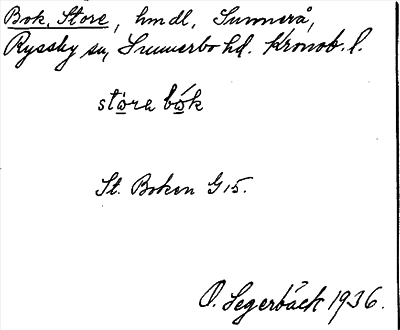 Bok, Store, hmdl, Sunnerå,
Ryssby sn, Sunnerbo hd. Kronob. l.
stòra bók
St. Boken G 15.
O. Segerbäck 1936.